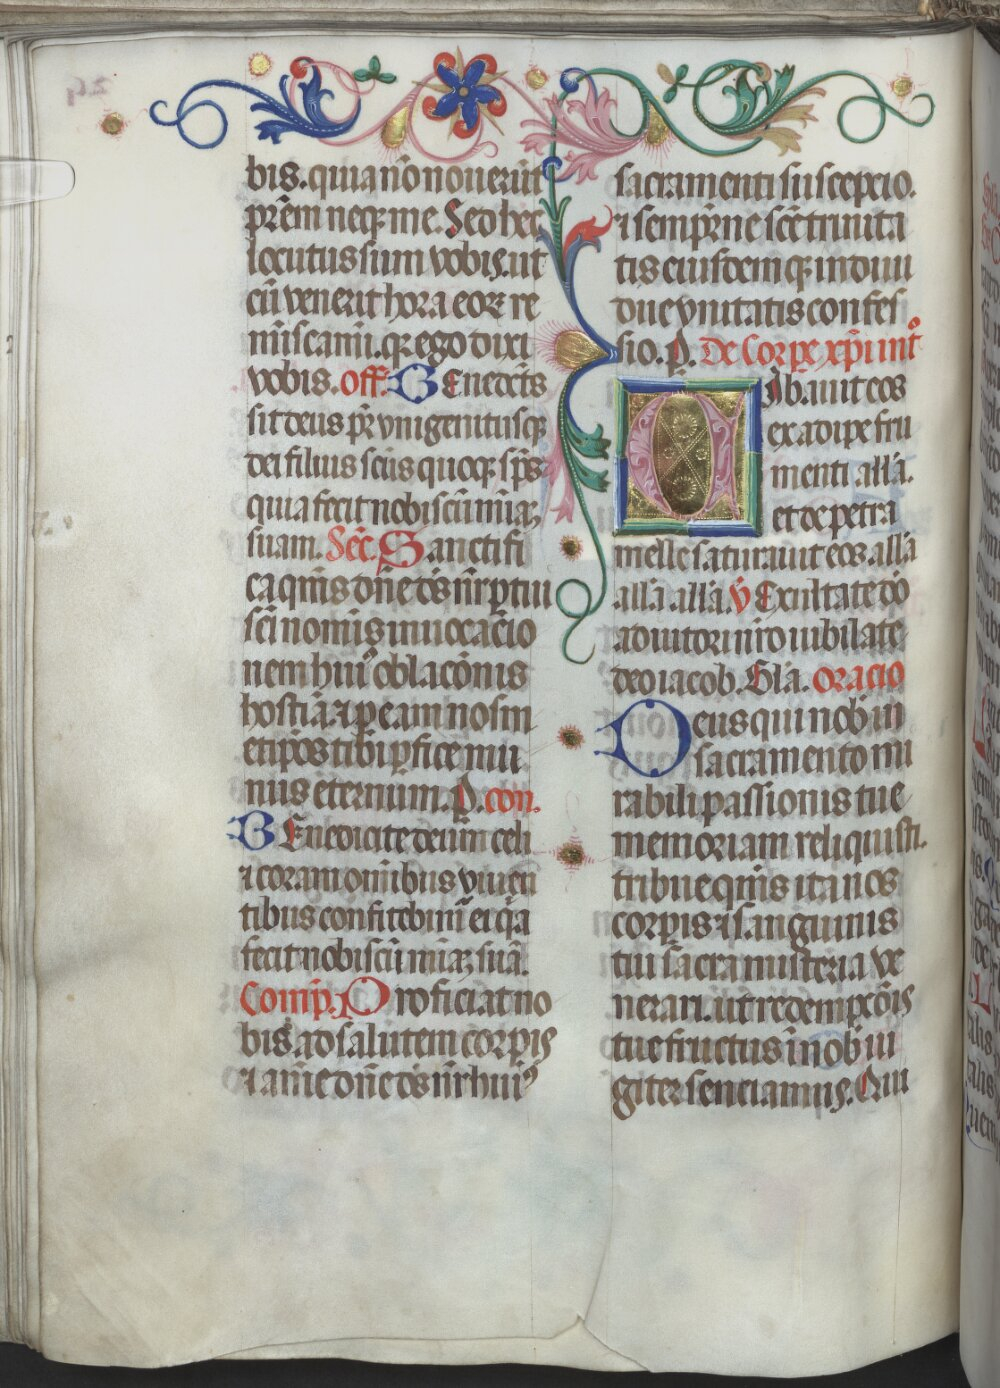 bis. quia nō nouerūt
prēm neqꝫ me. Sed hec
locutus sum vobis. ut
cū venerit hora eoꝝ re
miscamī. qꝫ ego dixi
vobis. Off. Benedc̄ts
sit deus pr̄ vnigenitusqꝫ
dei filius sc̄us quoqꝫ sp̄s
quia fecit nobiscū mīaꝫ
suam. Sec̄. Sanctifi
ca qm̄s dn̄e ds̄ nr̄ ꝑ tui
sc̄i nom̄is inuocac̄io
nem huiꝰ oblac̄onis
hostiā. ⁊ ꝑ eam nosm̄
etip̄os tibi ꝑfice mu
nus eternum. P. con.
Benedicite deum celi
⁊ coram om̄ibus viuen̄
tibus confitebim̄ ei q̄a
fecit nobiscū mīaꝫ suā.
Comp̄. Proficiat no
bis ad salutem corꝑis
⁊ anīe dn̄e ds̄ nr̄ huiꝰ
sacramenti suscepcio.
⁊ sempr̄ne sc̄e trinita
tis eiusdemqꝫ indiui
due vnitatis confes
sio. P. De Corpe xp̄i intꝰ
Cibauit eos
ex adipe fru
menti all̄a.
et de petra
melle saturauit eos. all̄a
all̄a all̄a. V̄ Exultate dō
adiutori nr̄o iubilate
deo iacob. Gl̄a. oracio
Deus qui nob̄ in
sacramento mi
rabili passionis tue
memoriam reliquisti.
tribue qm̄s ita nos
corꝑis ⁊ sanguinis
tui sacra misteria ve
nerari. ut redempc̄ōis
tue fructus ī nob̄ iu
giter senciamus. Qui